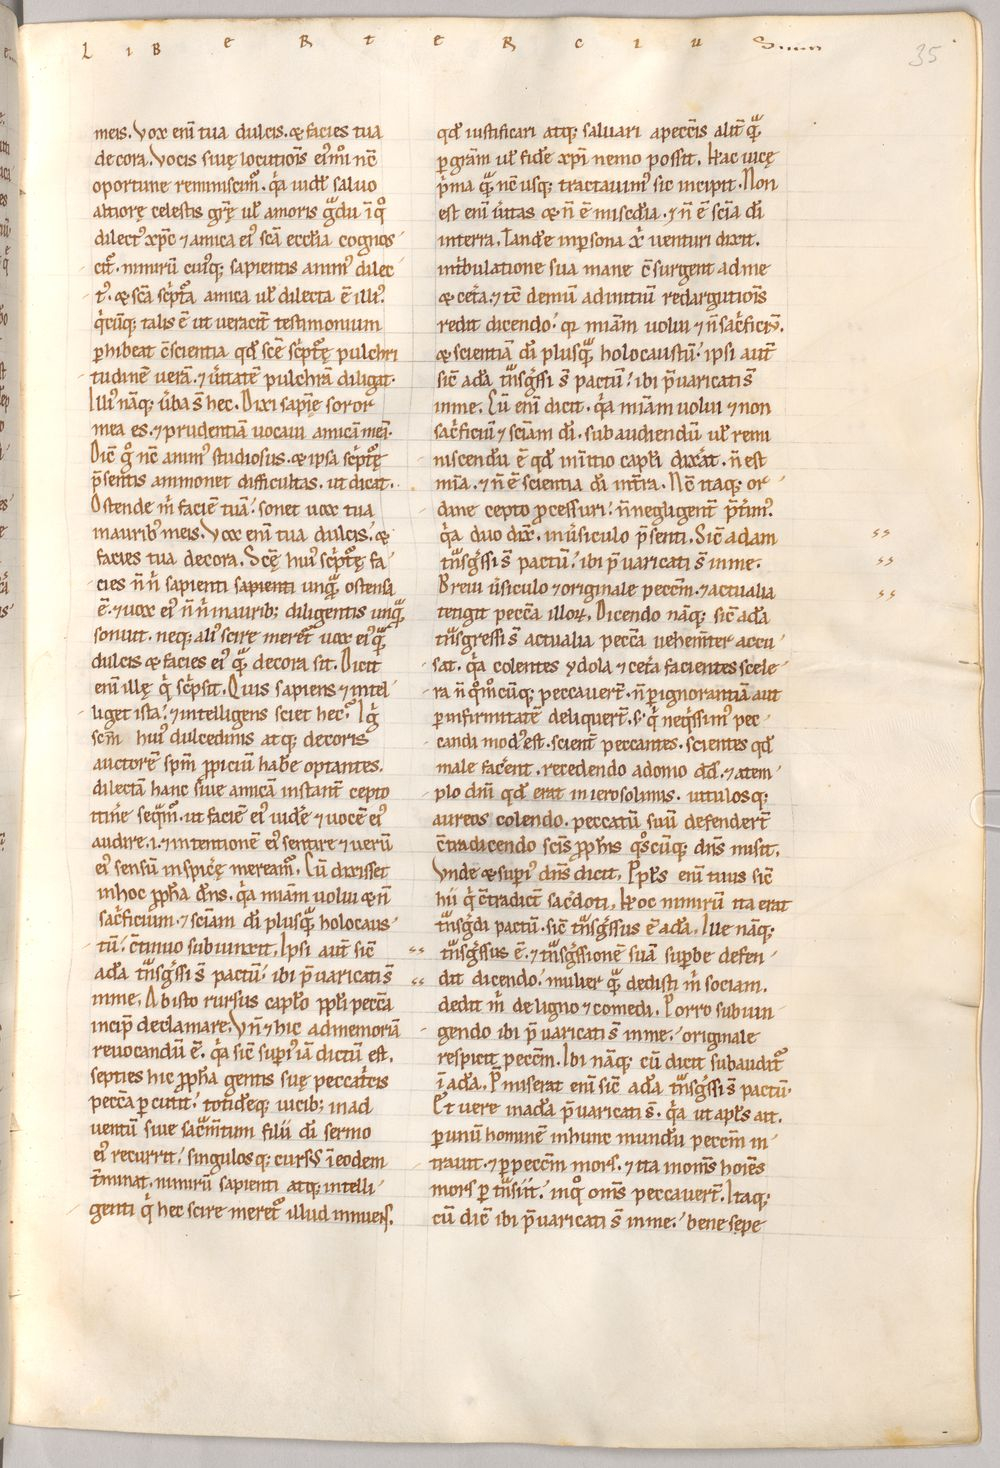 LIBER TERCIUS
35
meis. Vox eni̅ tua dulcis. & facies tua
decora. Vocis suię locutiois̅ ei᷒ mi̅ nc̅
oportune reminiscim᷒. qͥa uid& saluo
altiorę celestis grę̅ ul̅ amoris gͣdu i̅ qͦ
dilect᷒ xp̅c ⁊ amica ei᷒ sca̅ eccl̅ia cognos
cit᷒. nimiru̅ cui᷒q; sapientis anim᷒ dilec
t᷒. & sca̅ sc̅pt᷒a amica ul̅ dilecta e̅ illi᷒.
qͥcu̅q; talis e̅ ut veracit̅ testimonium
phibeat c̅scientia qd̅ sce̅ sc̅pt᷒ę pulchri
tudine̅ vera̅. ⁊ u̅itate̅ pulchra̅ diligat.
Illi᷒ na̅q; u̅ba s̅ hec. Dixi sapię̅ soror
mea es. ⁊ prudentia̅ uocaui amica̅ mea̅.
Dic̅ gͦ nc̅ anim᷒ studiosus. & ipsa sc̅pt᷒ę
p̅sentis ammonet difficultas. ut dicat.
Ostende m̅ facie̅ tua̅. sonet uox tua
maurib᷒ meis. Vox eni̅ tua dulcis. &
facies tua decora. Scę̅ hui᷒ sc̅pt᷒ę fa
cies n̅ n̅ sapienti sapienti unqͣ̅ ostensa
e̅. ⁊ uox ei᷒ n̅ n̅ mauribus diligentis unqͣ̅
sonuit. neq; ali᷒ scire meret᷒ uox ei᷒ qͣ̅
dulcis & facies ei᷒ qͣ̅ decora sit. Dicit
eni̅ illę qͥ sc̅psit. Quis sapiens ⁊ intel
liget ista. ⁊ intelligens sciet hec. Igͥ
scm̅ hui᷒ dulcedinis atq; decoris
auctore̅ spm̅ ppiciu̅ habe̅ optantes.
dilecta̅ hanc siue amica̅ instant̅ cepto
itine̅ seqm᷒. ut facie̅ ei᷒ uide̅ ⁊ uoce̅ ei᷒
audire. i. ⁊ intentione̅ ei᷒ sentire ⁊ ueru̅
ei᷒ sensu̅ inspicę̅ meream᷒. Cu̅ dixisset
inhoc pph̅a dn̅s. qͥa mia̅m uolui & n̅
sac̅ficium. ⁊ scia̅m di̅ plusqͣ̅ holocaus
tu̅. c̅tinuo subiunxit. Ipsi aut̅ sic̅
ada̅ tͣ̅sgͥssi s̅ pactu̅. ibi p̅uaricati s̅
inme. Abisto rursus capl̅o pph̅i pecca̅
incip̅ declamare. Vn̅ ⁊ hic admemoria̅
reuocandu̅ e̅. qͥa sic̅ supi᷒ ia̅ dictu̅ est.
septies hic pph̅a gentis suę peccatͥcis
pecca̅ pcutit. totideq; uicib; inad
uentu̅ siue sacͣm̅tum filii di̅ sermo
ei᷒ recurrit. singulosq; curs᷒ i̅ eodem
t̅minat. nimiru̅ sapienti atq; intelli
genti qͥ hec scire meret᷒ illud innuens.
qd̅ iustificari atq; saluari apeccis̅ alit̅ qͣ̅
pgra̅m ul̅ fide̅ xp̅i nemo possit. Hac uicę
p̅ma qͣ̅ nc̅ usq; tractauim᷒ sic incipit. Non
est eni̅ u̅itas & n̅ e̅ misc̅dia. ⁊ n̅ e̅ scia̅ di̅
interra. Tande̅ inpsona x̅ uenturi dixit.
int̅bulatione sua mane c̅surgent adme
& cet̅a. ⁊ tc̅ demu̅ adinitiu̅ redargutiois̅
redit dicendo. qr mia̅m uolui ⁊ n̅ sac̅ficiu̅.
& scientia̅ di̅ plusqͣ̅ holocaustu̅. ipsi aut̅
sic̅ ada̅ tͣ̅sgͥssi s̅ pactu̅. ibi p̅uaricati s̅
inme. Cu̅ eni̅ dicit. qͥa mia̅m uolui ⁊ non
sac̅ficiu̅ ⁊ scia̅m di̅. subaudiendu̅ ul̅ remi
niscendu̅ e̅ qd̅ initio capl̅i dixat̅. n̅ est
mia̅. ⁊ n̅ e̅ scientia di̅ int̅ra. Nc̅ itaq; or
dane cepto pcessuri. n̅ negligent̅ p̅t̅im᷒.
qͥa duo dix̅. inu̅siculo p̅senti. Sic̅ adam
tͣ̅sgͥssi s̅ pactu̅. ibi p̅uaricati s̅ inme.
Breui u̅siculo ⁊ originale pecc̅m. ⁊ actualia
tetigit pecca̅ illoꝝ. Dicendo na̅q; sic̅ ada̅
tͣ̅sgressi s̅ actualia pecca̅ uehem̅ter accu
sat. qͥa colentes ydola ⁊ cet̅a facientes scele
ra n̅ qͦmͦcu̅q; peccauert̅. n̅ pignorantia̅ aut
pinfirmitate̅ deliquert̅. s; qͥ neqͥssim᷒ pec
candi mod᷒ est. scient̅ peccantes. scientes qd̅
male facent̅. recedendo adomo dd̅. ⁊ atem
plo dni̅ qd̅ erat inierosolimis. uitulosq;
aureos colendo. peccatu̅ suu̅ defendert̅
c̅tradicendo scis̅ pph̅is qͦscu̅q; dn̅s misit.
Vnde & supi᷒ dn̅s dicit. Ppl̅s eni̅ tuus sic̅
hii qͥ c̅tradict̅ sac̅doti. Hoc nimiru̅ ita erat
tͣ̅sgͥdi pactu̅. sic̅ tͣ̅sgͥssus e̅ ada̅. Iue na̅q;
tͣ̅sgͥssus e̅. ⁊ tͣ̅sgͥssione̅ sua̅ supbe defen
dit dicendo. mulier qͣ̅ dedisti m̅ sociam.
dedit m̅ de ligno ⁊ comedi. Porro subiun
gendo ibi p̅uaricati s̅ inme. originale
respicit pecc̅m. Ibi na̅q; cu̅ dicit subaudit᷒
i̅ ada̅. P̅miserat eni̅ sic̅ ada̅ tͣ̅sgͥssi s̅ pactu̅.
Et uere inada̅ p̅uaricati s̅. qͥa ut apls̅ ait.
punu̅ homine̅ inhunc mundu̅ pecc̅m in
trauit. ⁊ ppecc̅m mors. ⁊ ita inoms̅ hoies̅
mors ptͣ̅siit. inqͦ oms̅ peccauert̅. Itaq;
cu̅ dic̅ ibi p̅uaricati s̅ inme. bene sępe